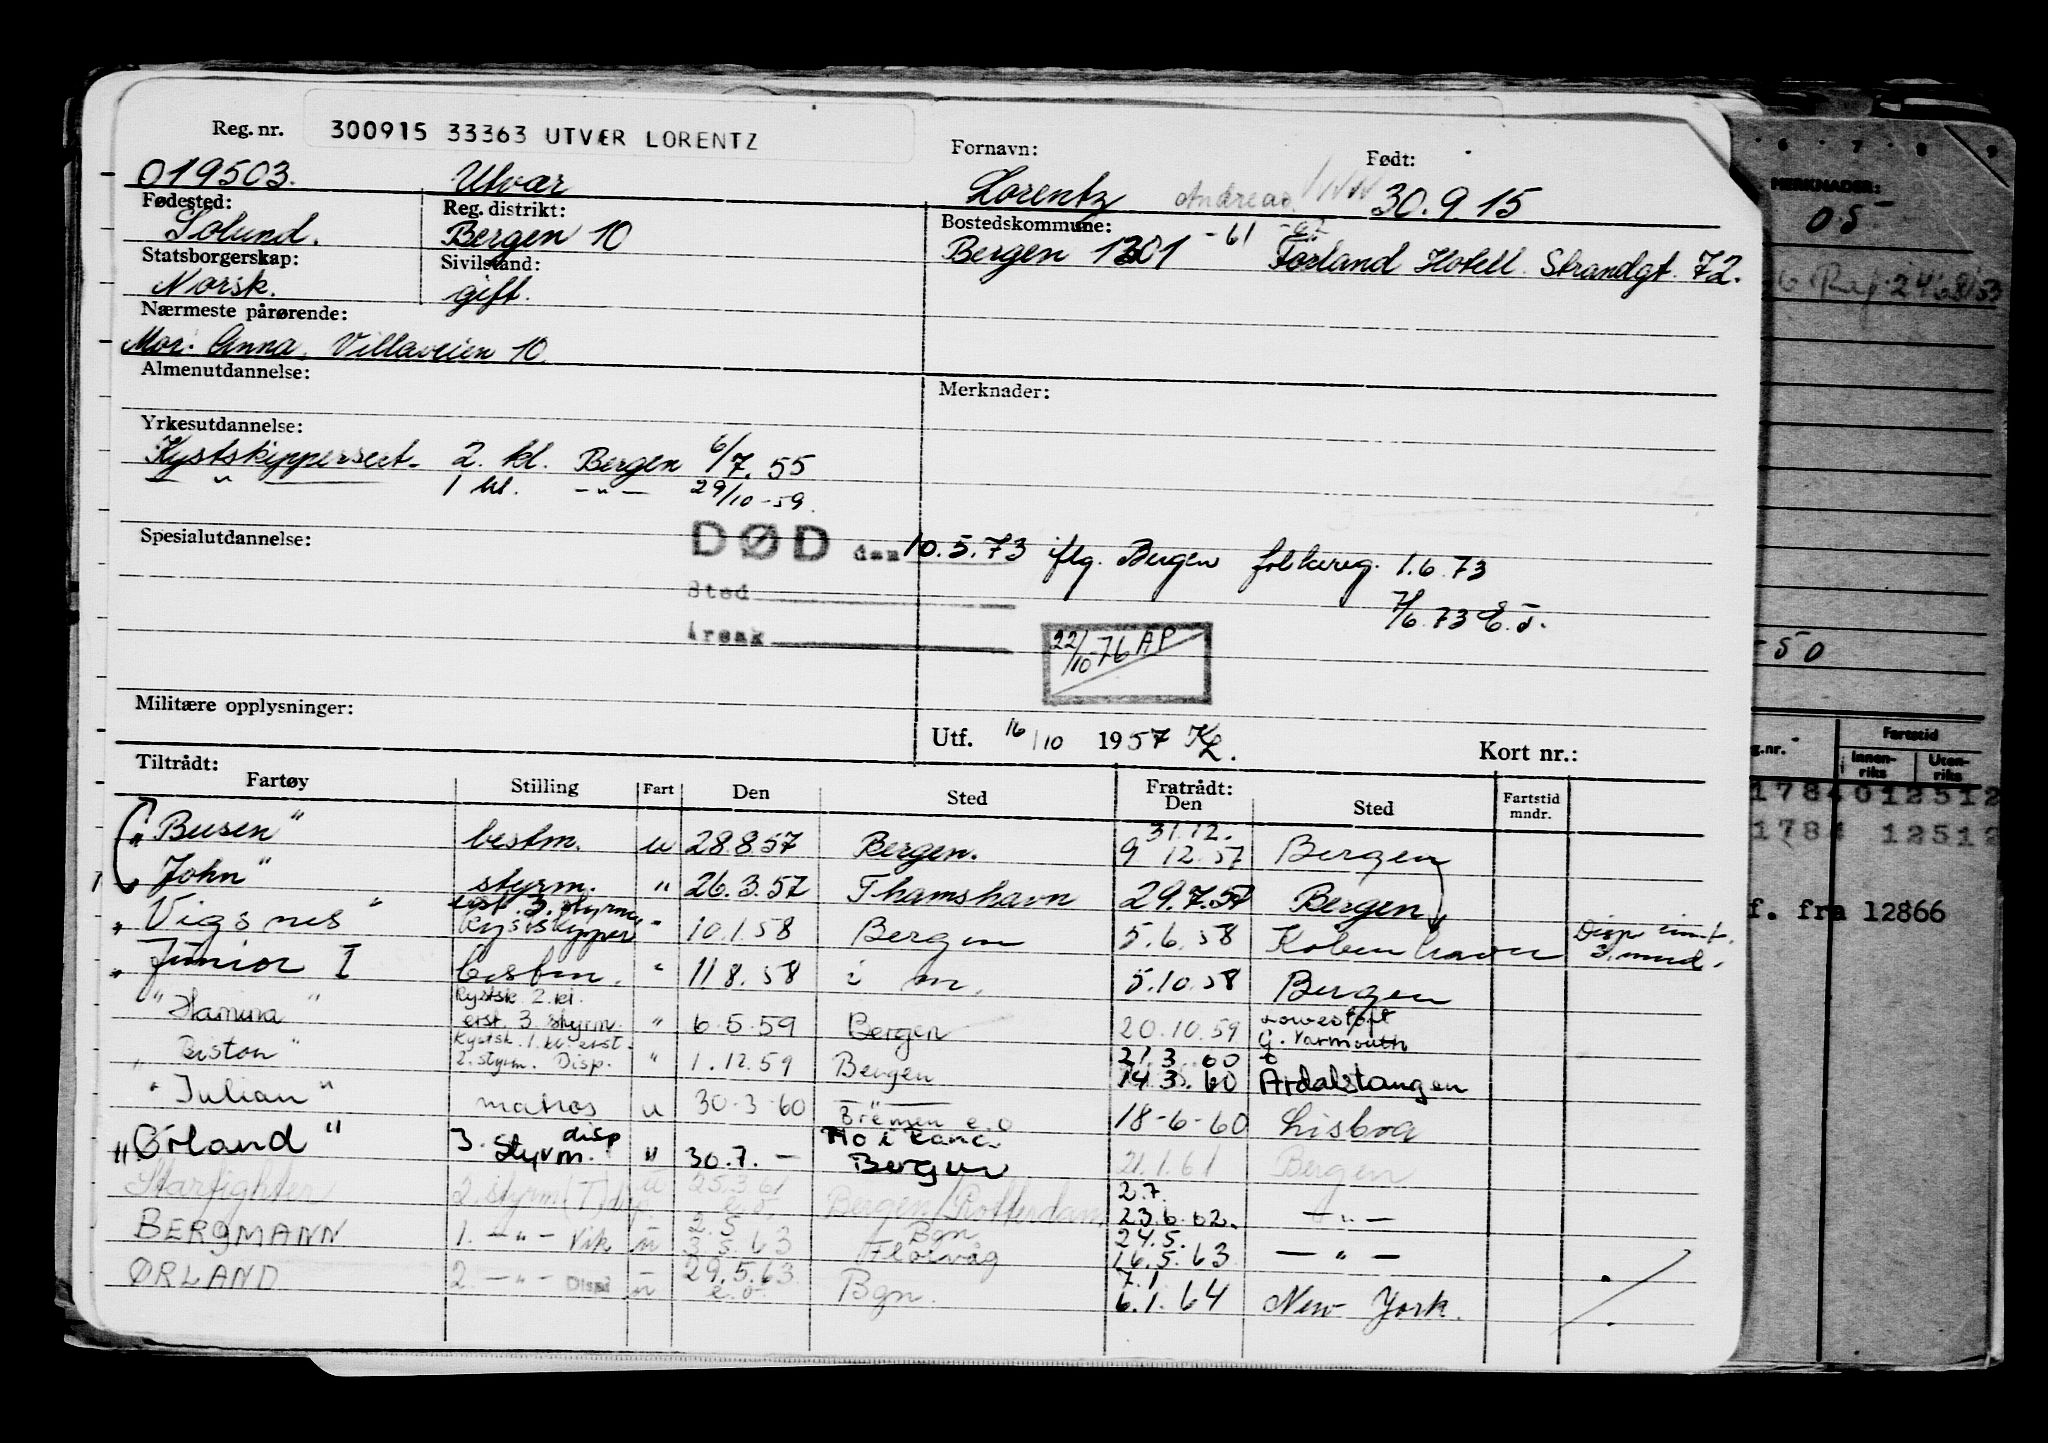 Reg. nr. 300915 33363 UTVÆR LORENTZ
Fornavn: Født:
019503. Utvær Lorentz Andreas 30.9.15
Fødested: Reg. distrikt: Bostedskommune:
Solund. Bergen 10 Bergen 1301 -61 Førland Hotell. Strandgt. 72.
Statsborgerskap: Sivilstand:
Norsk. gift.
Nærmeste pårørende:
Mor: Anna. Villaveien 10.
Almenutdannelse: Merknader:
Yrkesutdannelse:
Kystskippersert. 2. kl. Bergen 6/7. 55
— " — 1 kl. — " — 29/10-59.
Spesialutdannelse:
DØD den 10.5.73 iflg. Bergen folkereg. 1.6.73
Sted 7/6.73 E.J.
Årsak
22/10-76 AP
Militære opplysninger:
Utf. 16/10 1957 KL. Kort nr.:
Tiltrådt: Fratrådt:
Fartøy Stilling Fart Den Sted Den Sted Fartstid mndr.
31.12.
"Busen" bestm. u 28.8.57 Bergen. 9 12.57 Bergen
"John" styrm. " 26.3.57 Thamshavn 29.7.57 Bergen
"Vigsnes" erst. 3. styrm. kystskipper " 10.1.58 Bergen 5.6.58 Köbenhavn Disp. 3. mnd.
"Junior I bestm. " 11.8.58 i m. 5.10.58 Bergen
"Hamina" Kystsk. 2. kl. erst. 3. styrm. " 6.5.59 Bergen 20.10.59 Lowestoft G. Yarmouth
"Biston" Kystsk. 1. kl. erst. 2. styrm. Disp. " 1.12.59 Bergen 21.3.60 14.3.60 Årdalstangen
"Julian" matros u 30-3-60 — " — Bremen e.o 18-6-60 Lisboa
"Ørland" 3. styrm. disp " 30.7. — Mo i Rana. Bergen 21.1.61 Bergen
Starfighter 2. styrm (T) disp. u 25.3.61 e.o. Bergen/Rotterdam 2.7. 23.6.62. — " —
BERGMANN 1. — " — Vik " 2.5. 3.5.63 Bgn Florvåg 24.5. 16.5.63 — " —
ØRLAND 2. — " — Disp " 29.5.63 e.o. Bgn. 7.1. 6.1.64 New York.
6 7 8 9
MERKNADER:
05
-50
g.nr. Fartstid
Innen-riks Uten-riks
1784012512
1784 12512
f. fra 12866